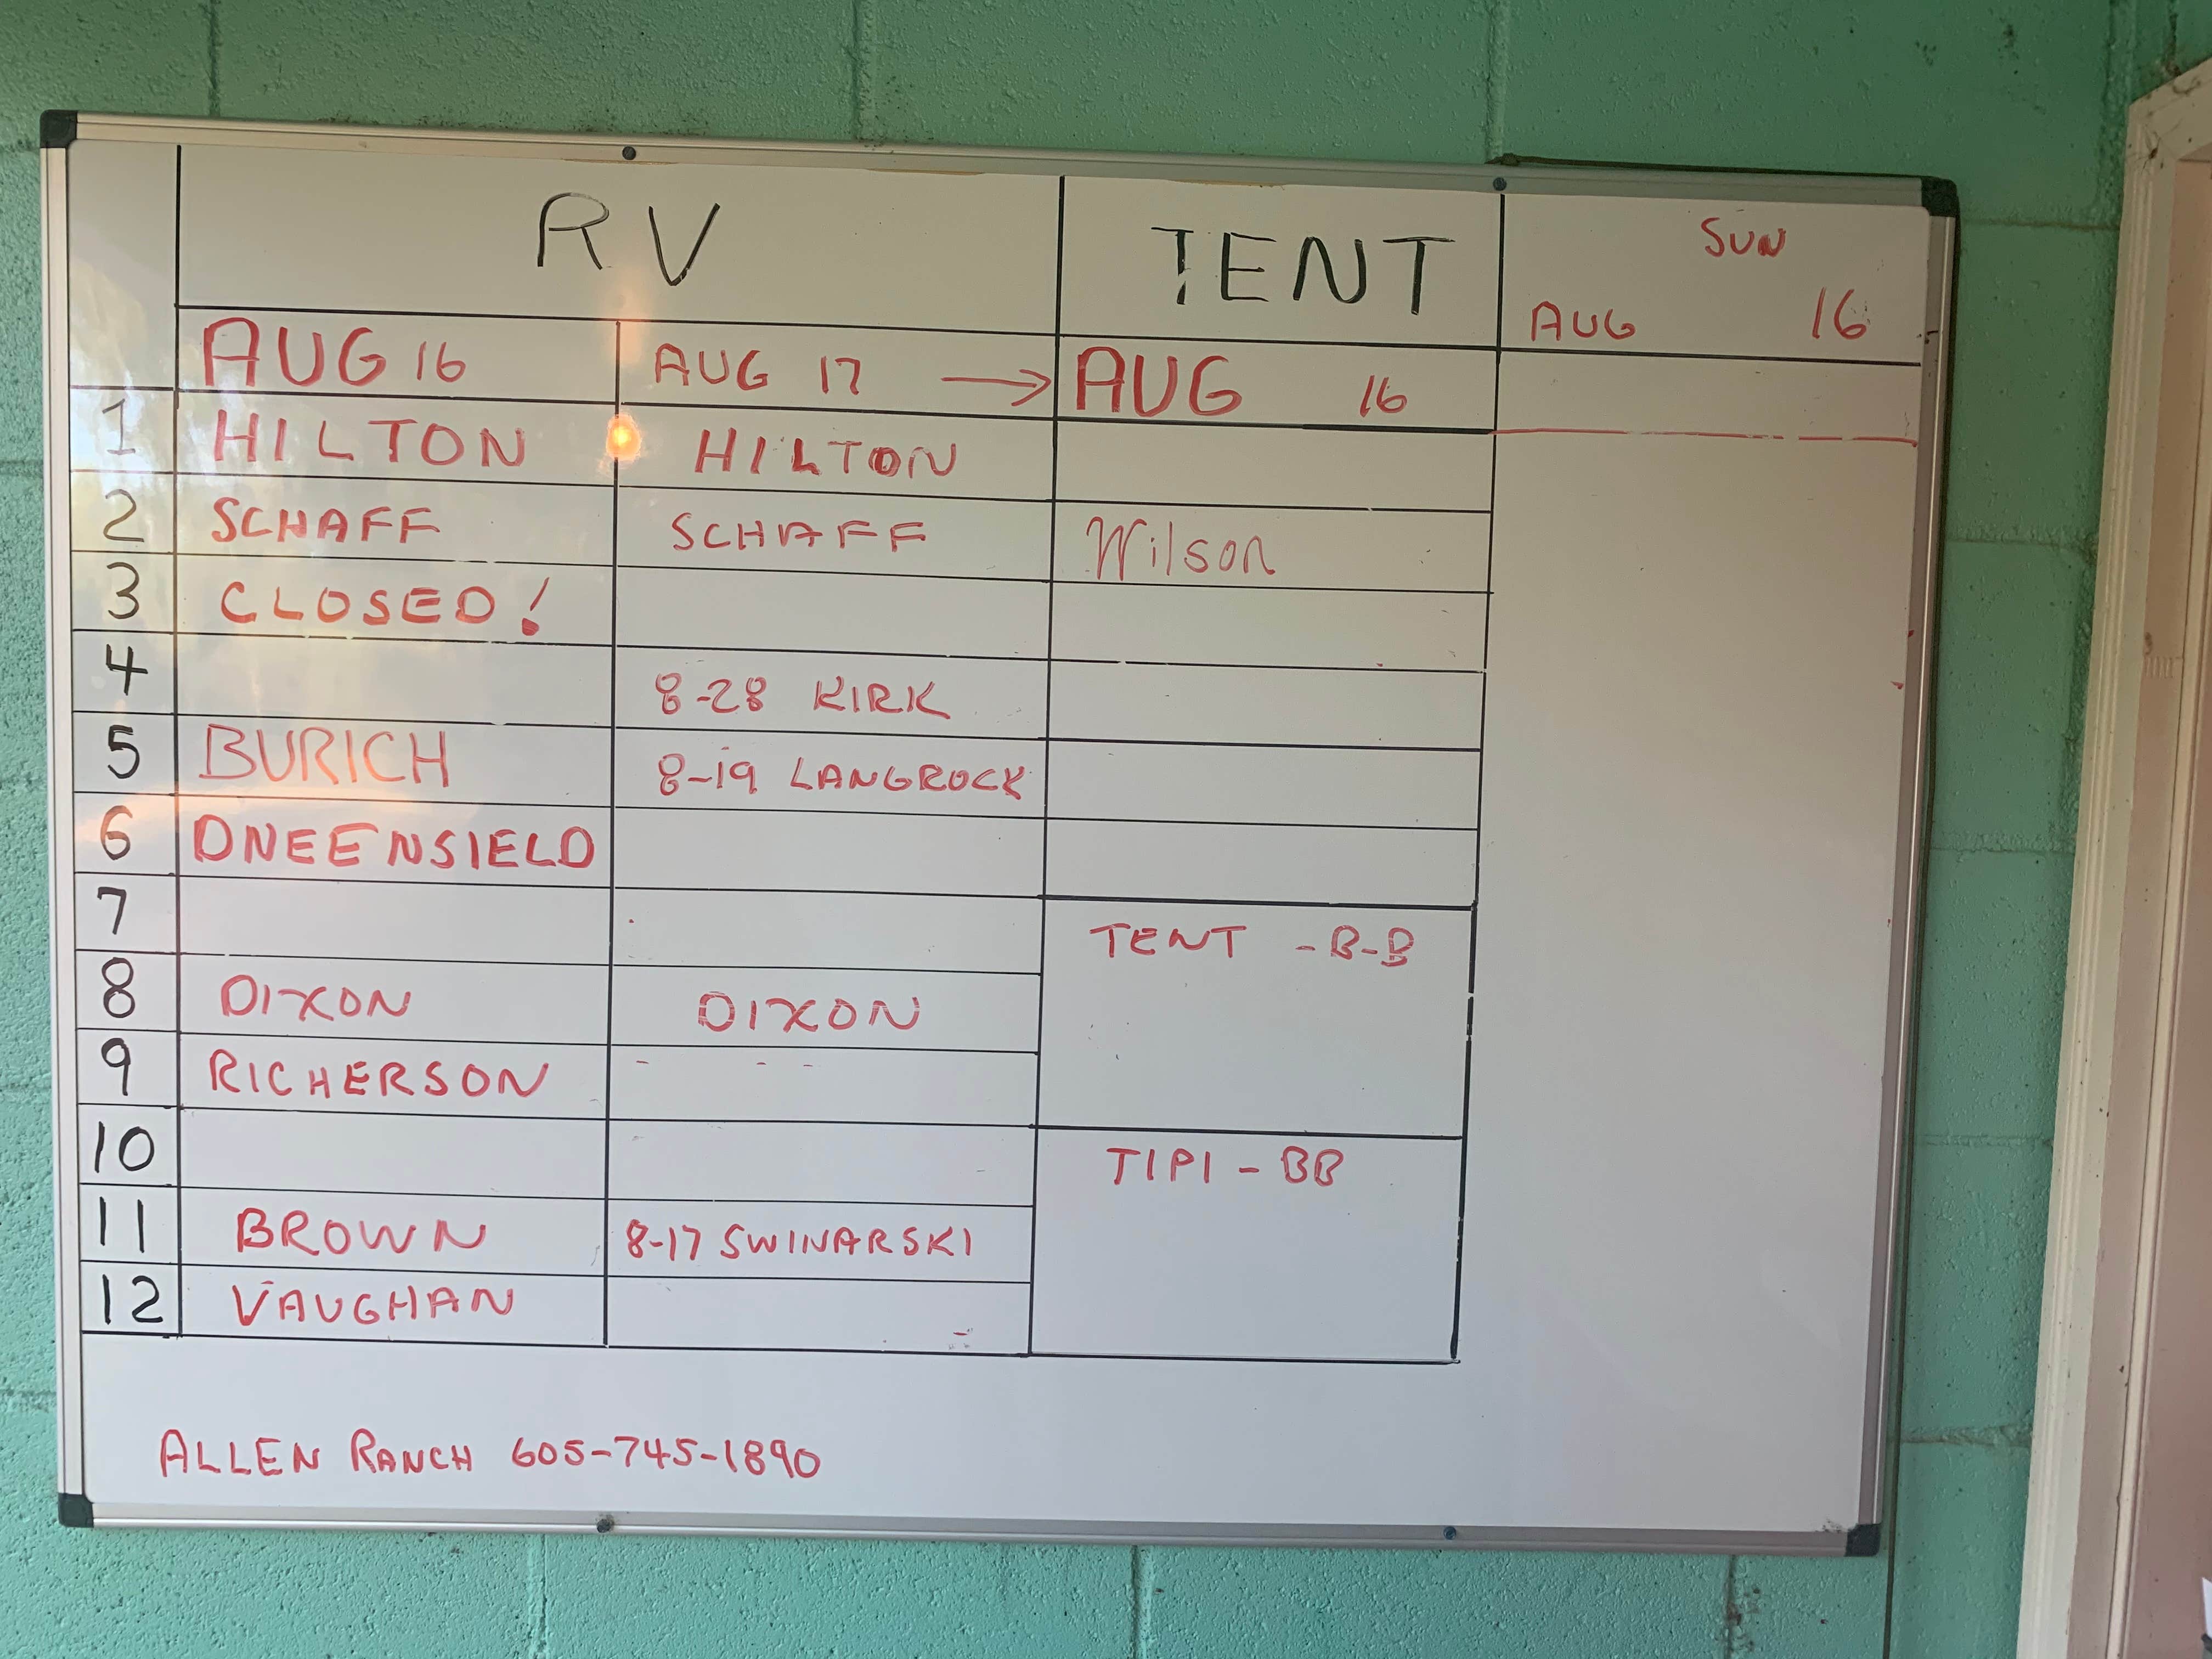 RV TENT SUN
AUG 16
AUG 16 AUG 17 → AUG 16
1 HILTON HILTON
2 SCHAFF SCHAFF Wilson
3 CLOSED!
4 8-28 KIRK
5 BURICH 8-19 LANGROCK
6 DNEENSIELD
7 TENT -B-B
8 DIXON DIXON
9 RICHERSON
10 TIPI - BB
11 BROWN 8-17 SWINARSKI
12 VAUGHAN
ALLEN RANCH 605-745-1890